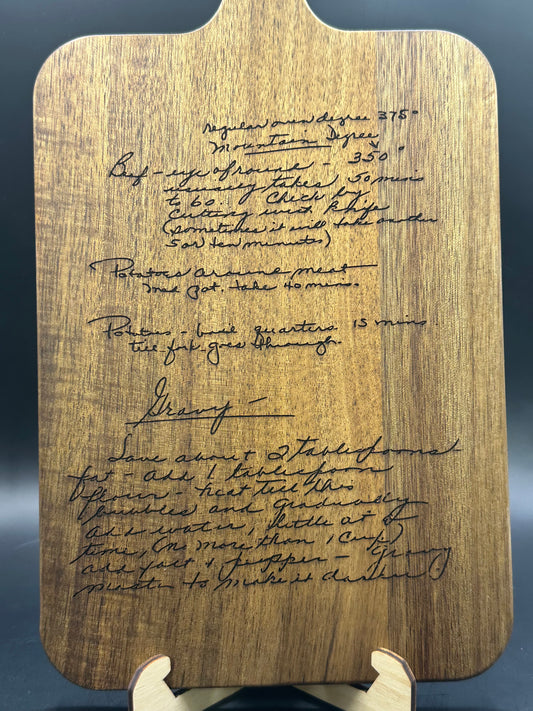 regular oven degree 375°
Mountain Degree
Beef - eye of round - 350°
usually takes 50 mins
to 60. Check by
cutting with knife
(sometimes it will take another
5 or ten minutes)
Potatoes around meat
med pot. take 40 mins.
Potatoes - boil quarters 15 mins
till fork goes through.
Gravy -
Save about 2 tablespoons
fat - add 1 tablespoon
flour - heat till this
bubbles and gradually
add water, little at a
time, (no more than 1 cup)
add salt & pepper - Gravy
master to make it darker